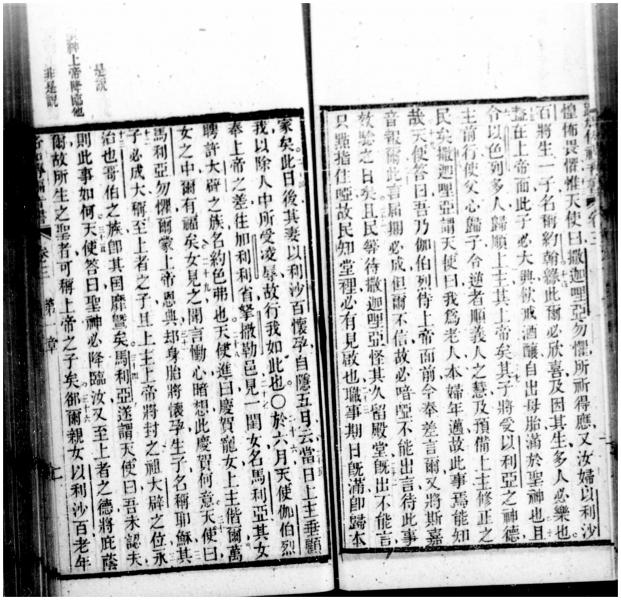 惶怖畏懼惟天使曰撒迦哩亞勿懼所祈得應又汝婦以利沙
百將生一子名稱約翰緣此爾必欣喜及因其生多人必樂也
蓋在上帝面此子必大與飲戒酒釀自出母胎滿於聖神也且
令以色列多人歸順上主其上帝矣其子將愛以利亞之神德
主前行使父心歸子令逆者順義人之慧及預備上主修正之
民矣撒迦哩亞謂天使曰我爲老人本婦年邁故此事焉能知
哉天使答曰吾乃伽伯列待上帝面前今奉差言爾又將斯嘉
音報爾此言屆期必成但爾不信故必喑啞不能出言待此事
效驗之日矣且民等待撒迦哩亞怪其久留殿堂旣出不能言
只點指住啞故民知堂裡必有見啟也職事期日旣滿卽歸本
家矣此日後其妻以利沙百懷孕自隱五日云當日上主垂顧
我以除人中所受凌辱故行我如此也〇於六月天使伽伯烈
奉上帝之差往加利利省拏撒勒邑見一閨女名馬利亞其女
聘許大辟之族名約色弗也天使進曰慶賀寵女上主偕爾萬
女之中爾有福矣女見之聞言慟心暗想此慶賀何意天使曰
馬利亞勿懼爾蒙上帝恩典却身胎將懷孕生子名稱耶穌其
子必成大稱至上者之子且上主上帝將封之祖大辟之位永
治也哥伯之族卽其國靡曁矣馬利亞遂謂天使曰吾未認夫
則此事如何天使答曰聖神必降臨汝又至上者之德將庇蔭
爾故所生之聖者可稱上帝之子矣卻爾親女以利沙百老年
卷三
第一章
是說
上帝降臨他
非是說